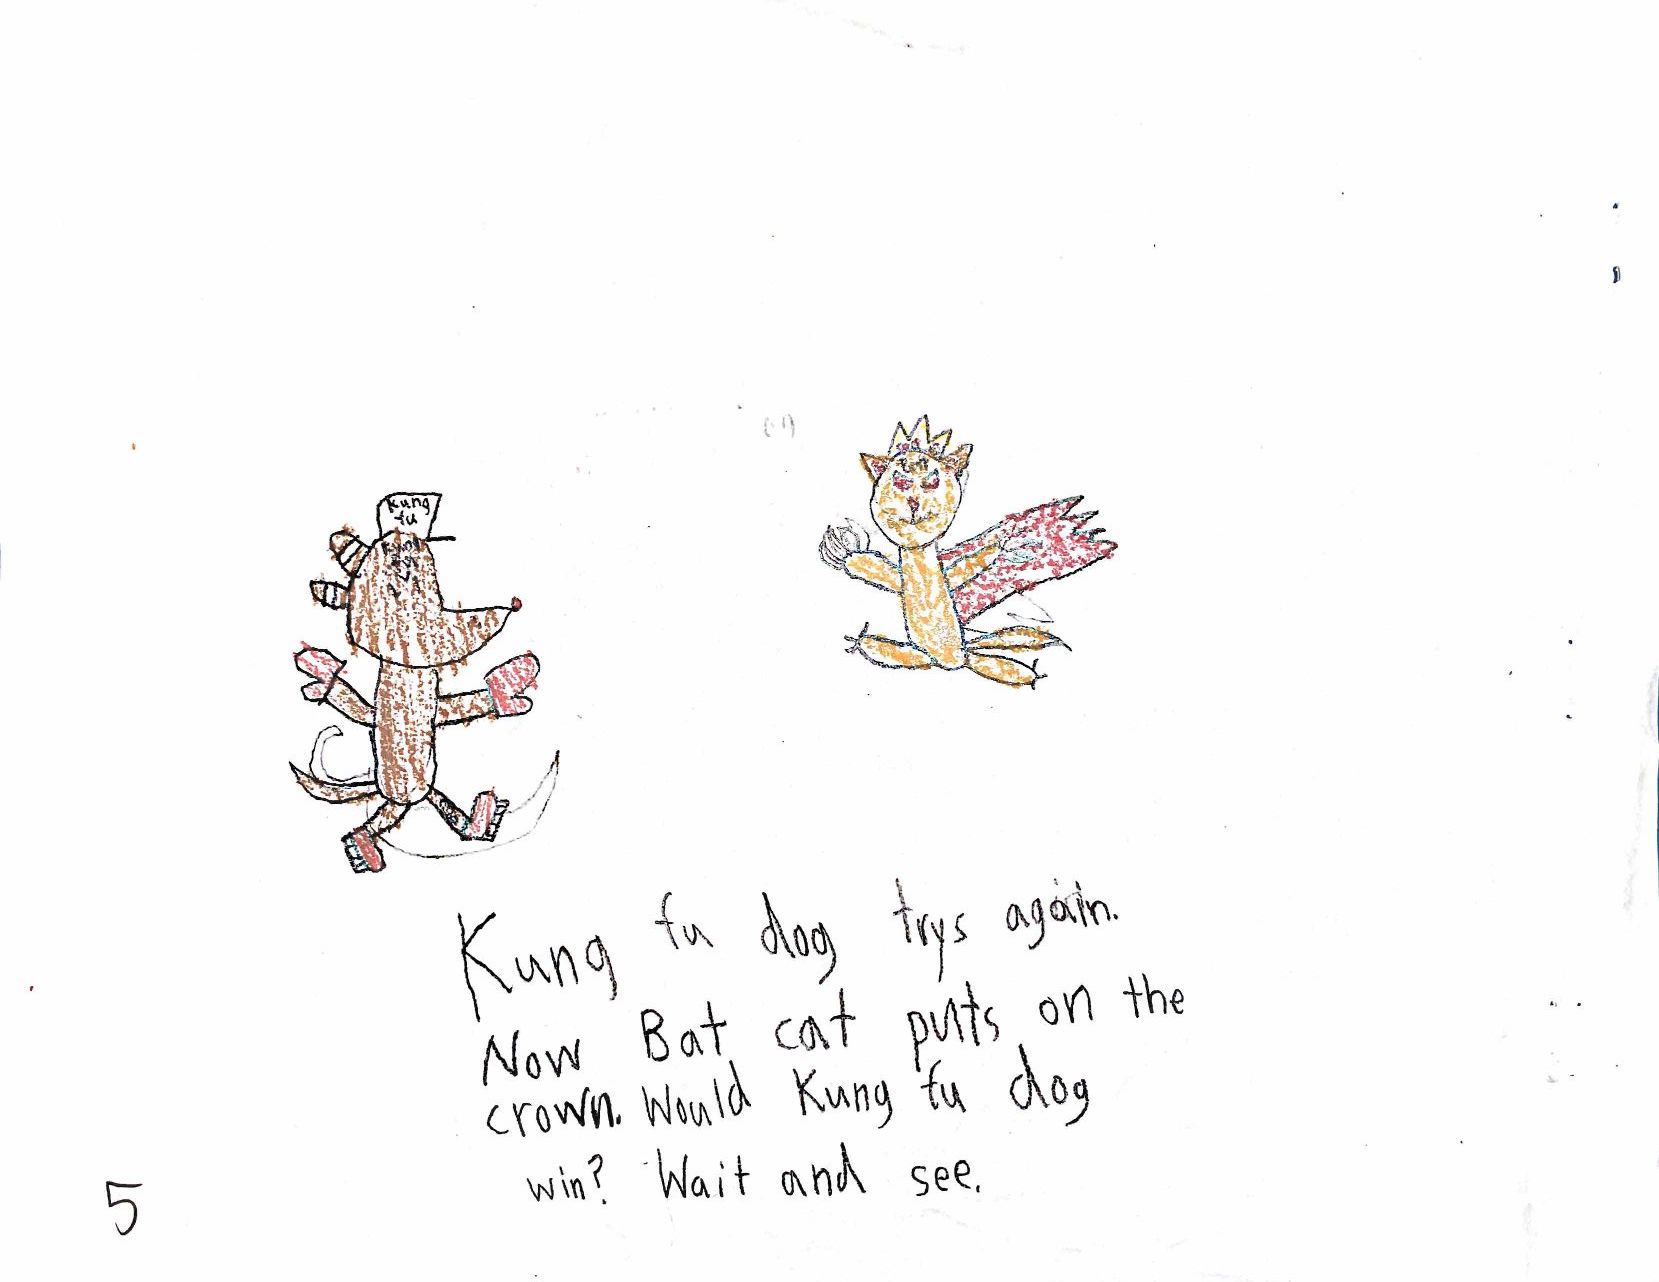 Kung
fu
Kung fu dog trys again.
Now Bat cat puts on the
crown. Would Kung fu dog
win? Wait and see.
5